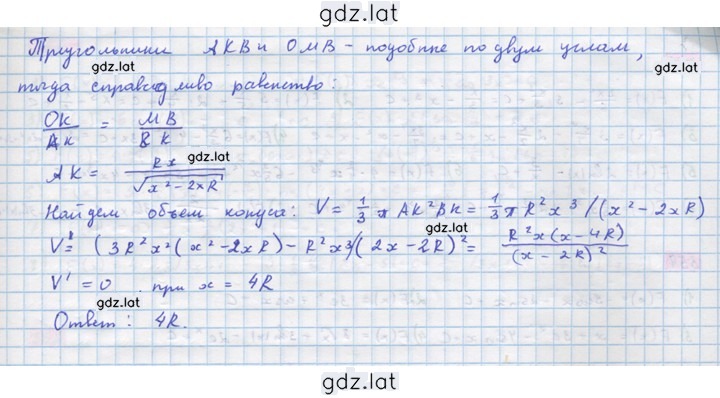 gdz.lat
Треугольники AKB и OMB – подобные по двум углам,
gdz.lat
тогда справедливо равенство:
OK/AK = MB/BK
gdz.lat
AK = Rx/√(x²-2xR)
gdz.lat
Найдем объем конуса: V = 1/3 π AK²BK = 1/3 π R²x³/(x²-2xR)
V' = (3R²x²(x²-2xR)-R²x³/(2x-2R)² = R²x(x-4R)/(x-2R)²
gdz.lat
V' = 0 при x = 4R
gdz.lat
Ответ: 4R.
gdz.lat
gdz.lat